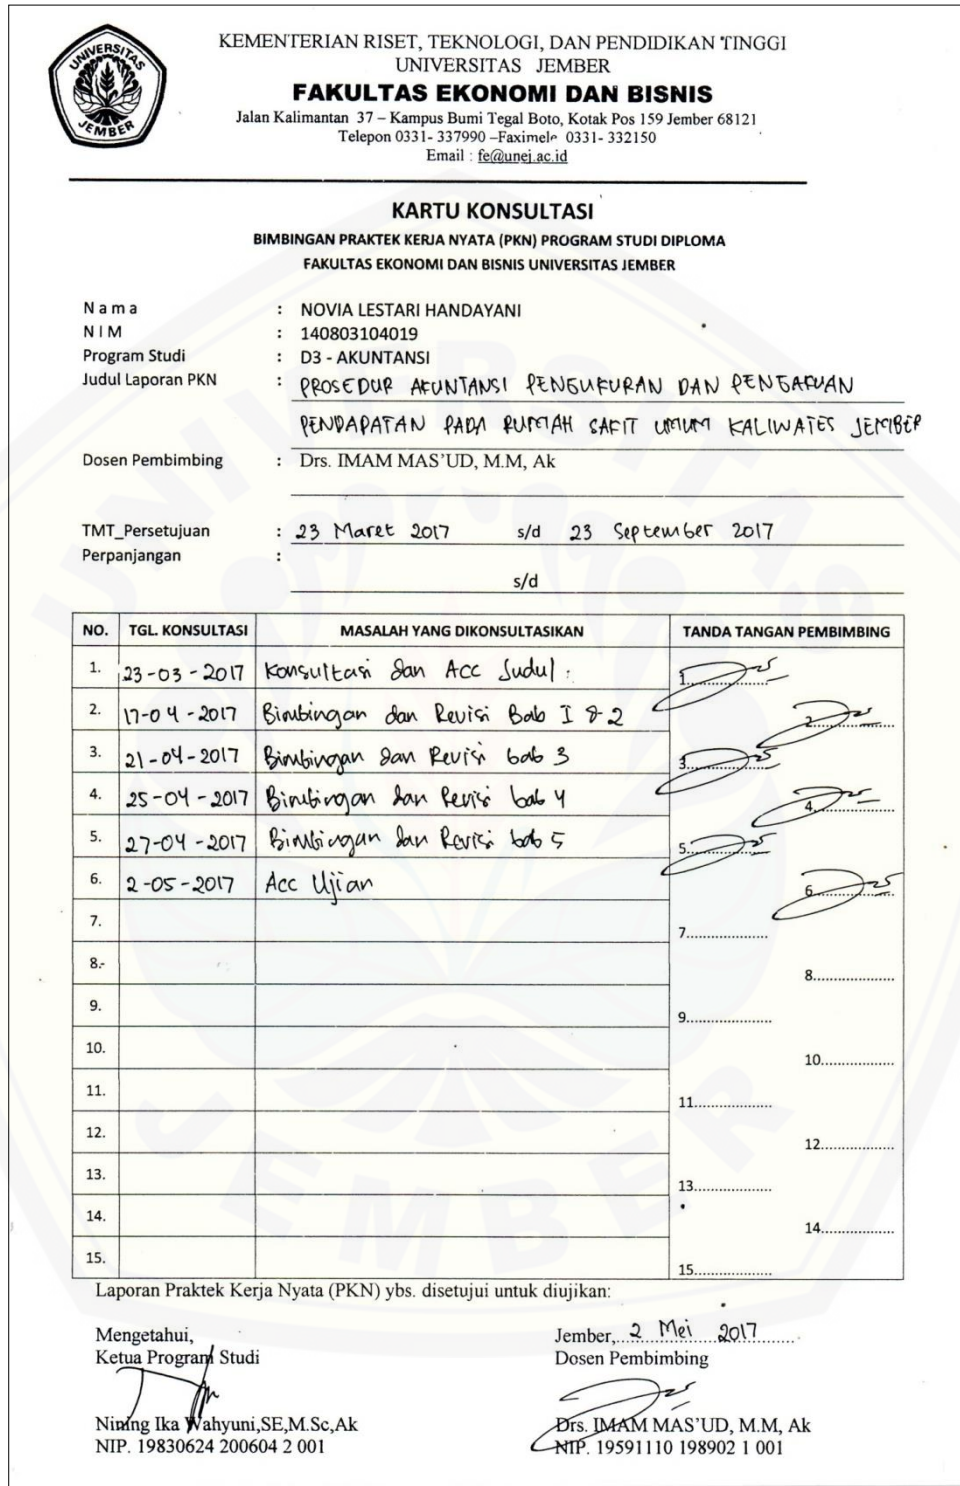 UNIVERSITAS
JEMBER
KEMENTERIAN RISET, TEKNOLOGI, DAN PENDIDIKAN TINGGI
UNIVERSITAS JEMBER
FAKULTAS EKONOMI DAN BISNIS
Jalan Kalimantan 37 – Kampus Bumi Tegal Boto, Kotak Pos 159 Jember 68121
Telepon 0331- 337990 –Faximele 0331- 332150
Email : fe@unej.ac.id
KARTU KONSULTASI
BIMBINGAN PRAKTEK KERJA NYATA (PKN) PROGRAM STUDI DIPLOMA
FAKULTAS EKONOMI DAN BISNIS UNIVERSITAS JEMBER
N a m a : NOVIA LESTARI HANDAYANI
N I M : 140803104019
Program Studi : D3 - AKUNTANSI
Judul Laporan PKN : PROSEDUR AKUNTANSI PENGUKURAN DAN PENGAKUAN
PENDAPATAN PADA RUMAH SAKIT UMUM KALIWATES JEMBER
Dosen Pembimbing : Drs. IMAM MAS'UD, M.M, Ak
TMT_Persetujuan : 23 Maret 2017 s/d 23 September 2017
Perpanjangan :
s/d
NO. TGL. KONSULTASI MASALAH YANG DIKONSULTASIKAN TANDA TANGAN PEMBIMBING
1. 23-03-2017 Konsultasi dan Acc Judul. 1....................
2. 17-04-2017 Bimbingan dan Revisi Bab I & 2 2....................
3. 21-04-2017 Bimbingan dan Revisi bab 3 3....................
4. 25-04-2017 Bimbingan dan Revisi bab 4 4....................
5. 27-04-2017 Bimbingan dan Revisi bab 5 5....................
6. 2-05-2017 Acc Ujian 6....................
7. 7....................
8. 8....................
9. 9....................
10. 10..................
11. 11..................
12. 12..................
13. 13..................
14. 14..................
15. 15..................
Laporan Praktek Kerja Nyata (PKN) ybs. disetujui untuk diujikan:
Mengetahui,
Ketua Program Studi
Nining Ika Wahyuni,SE,M.Sc,Ak
NIP. 19830624 200604 2 001
Jember, 2 Mei 2017
Dosen Pembimbing
Drs. IMAM MAS'UD, M.M, Ak
NIP. 19591110 198902 1 001